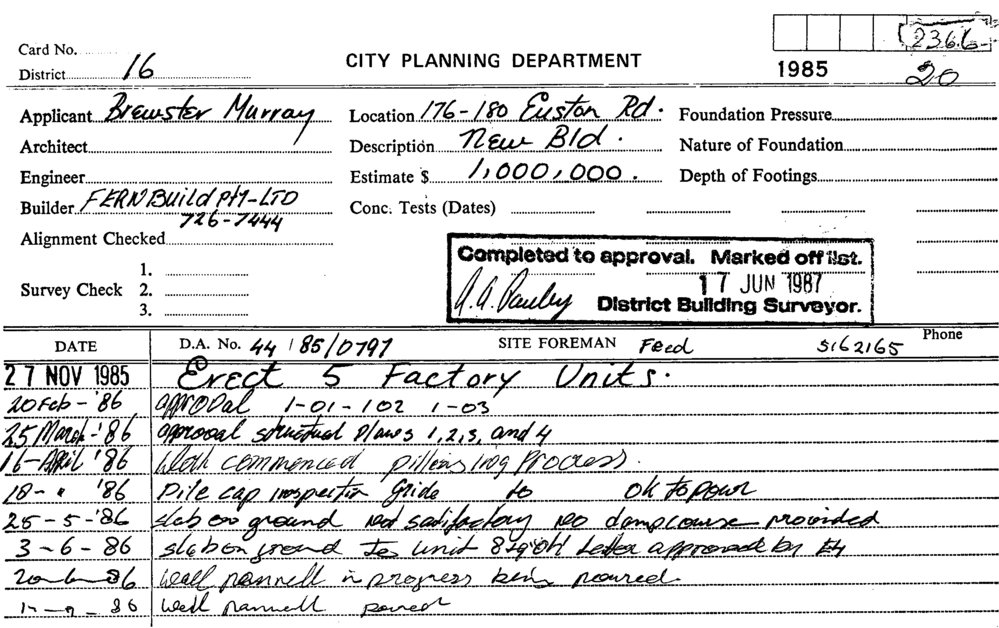 2366
Card No.
District 16
CITY PLANNING DEPARTMENT
1985 20
Applicant Brewster Murray
Location 176-180 Euston Rd.
Foundation Pressure
Architect
Description New Bld.
Nature of Foundation
Engineer
Estimate $ 1,000,000.
Depth of Footings
Builder FERNBuild Pty-LTD
726-7444
Conc. Tests (Dates)
Alignment Checked
Survey Check 1.
2.
3.
Completed to approval. Marked off list.
17 JUN 1987
District Building Surveyor.
DATE
D.A. No. 44/85/0797
SITE FOREMAN
Phone
5162165
27 NOV 1985 Erect 5 Factory Units.
20 Feb-'86 approval 1-01-102 1-03
25 March-'86 approval structual Plans 1,2,3, and 4
16-April '86 Work commenced Process.
18-" '86 Pile cap inspection Gride to ok to pour
25-5-'86 slab on ground not satisfactory no dampcourse provided
3-6-86 slab on ground to unit Letter approved by
86 wall pannell in progress being poured
86 wall pannell poured